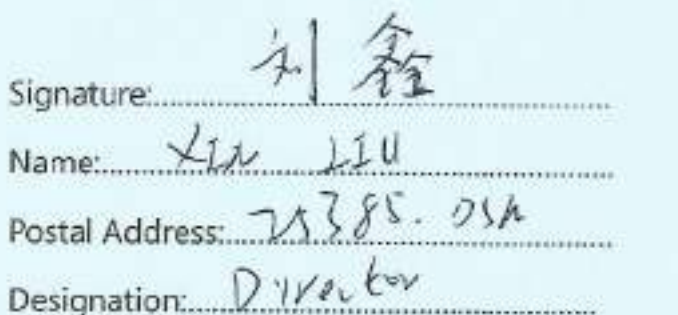 Signature: 刘鑫
Name: XIN LIU
Postal Address: 25385. DSM
Designation: Director